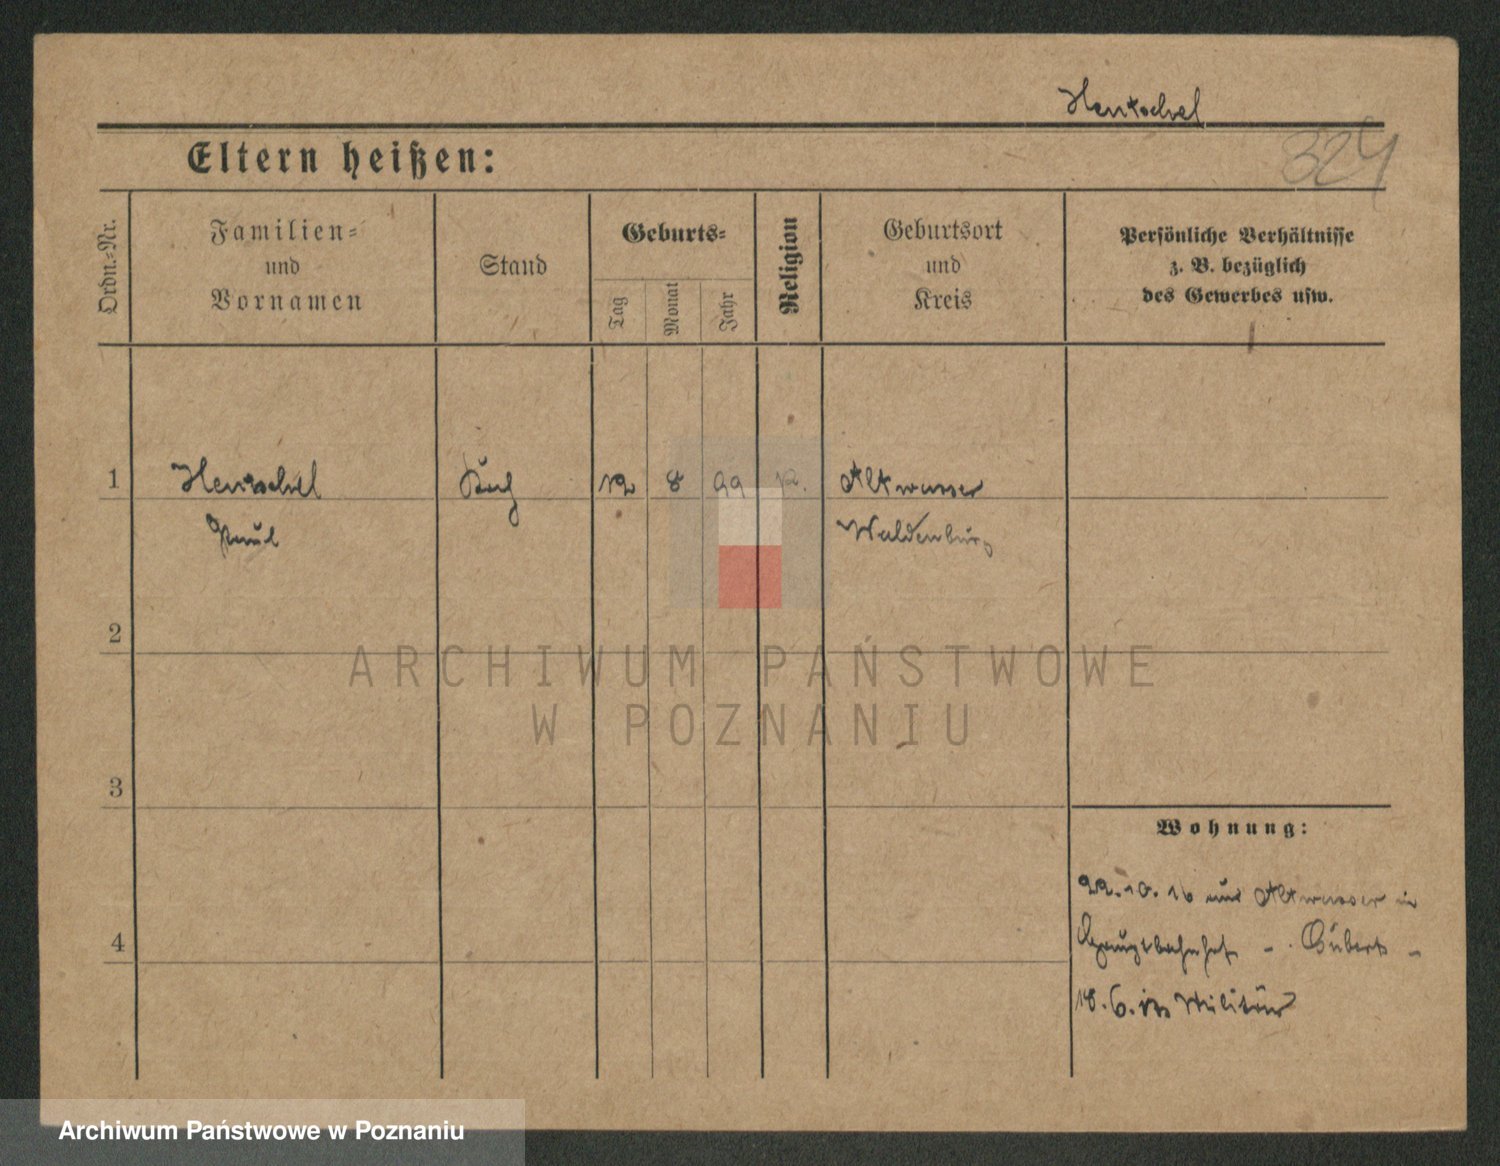 Hentschel
324
Eltern heißen:
Ordn.-Nr.
Familien-
und
Vornamen
Stand
Geburts-
Tag
Monat
Jahr
Religion
Geburtsort
und
Kreis
Persönliche Verhältnisse
z. B. bezüglich
des Gewerbes usw.
1 Hentschel Koch 12 8 99 Altwasser
Paul Waldenburg
2
3
4
Wohnung:
22.10.16 aus Altwasser in
Hauptbahnhof -
18.6. Militär
ARCHIWUM PAŃSTWOWE
W POZNANIU
Archiwum Państwowe w Poznaniu